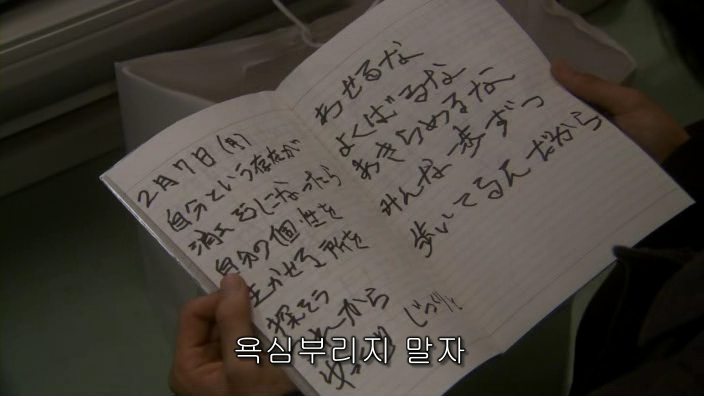 2月7日(月)
自分という存在が
消えそうになったら
自分の個性を
生かせる所を
探そう
から
じっくりと
あせるな
よくばるな
あきらめるな
みんな一歩ずつ
歩いてるんだから
욕심부리지 말자